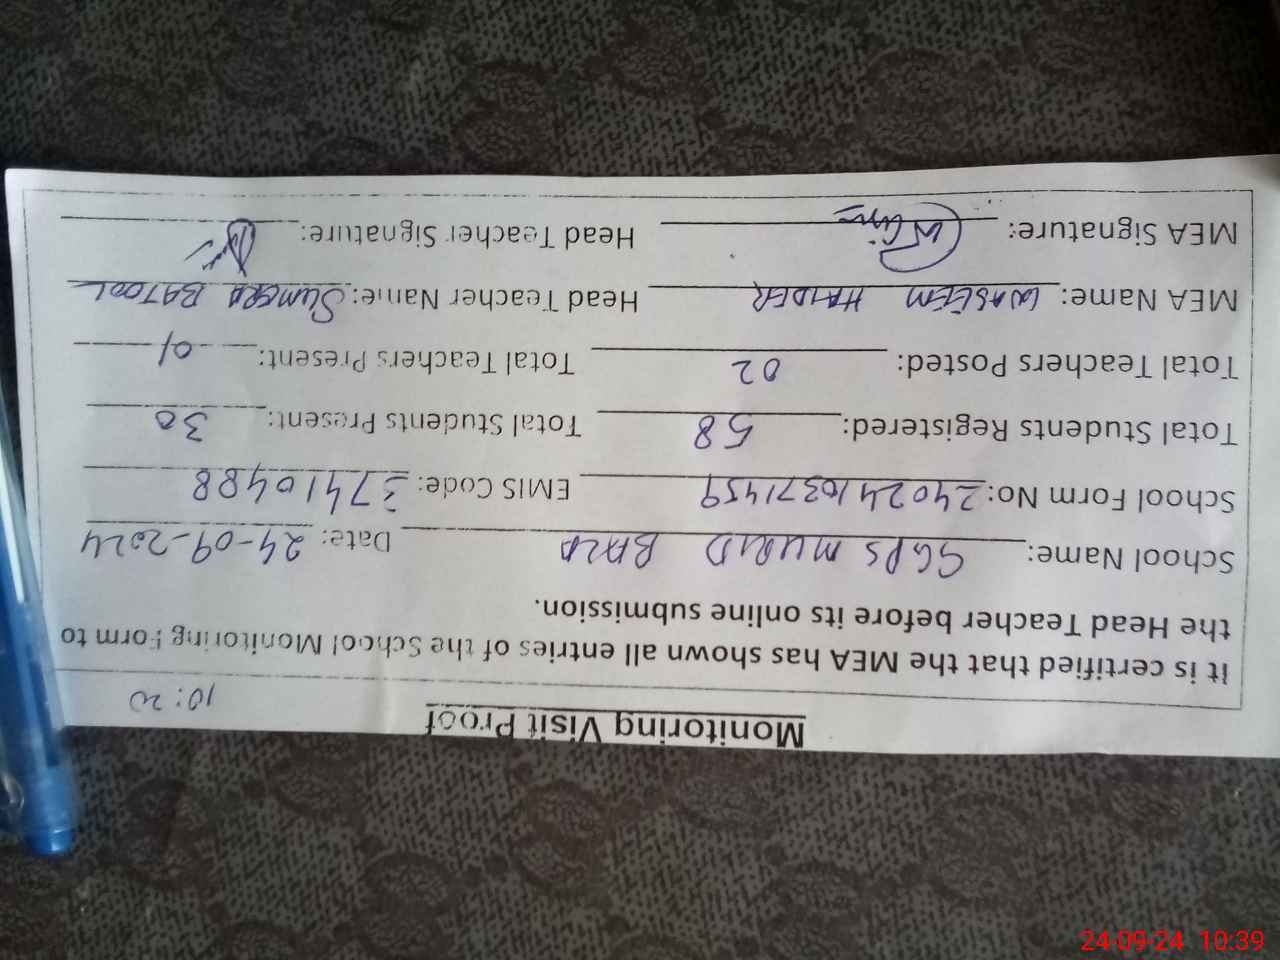 Monitoring Visit Proof
10:20
It is certified that the MEA has shown all entries of the School Monitoring Form to
the Head Teacher before its online submission.
School Name: GGPS MURID Date: 24-09-2024
School Form No: 2402410371459 EMIS Code: 37410488
Total Students Registered: 58 Total Students Present: 30
Total Teachers Posted: 02 Total Teachers Present: 01
MEA Name: WASEEM HAIDER Head Teacher Name: SUMERA BATOOL
MEA Signature: Head Teacher Signature:
24-09-24 10:39